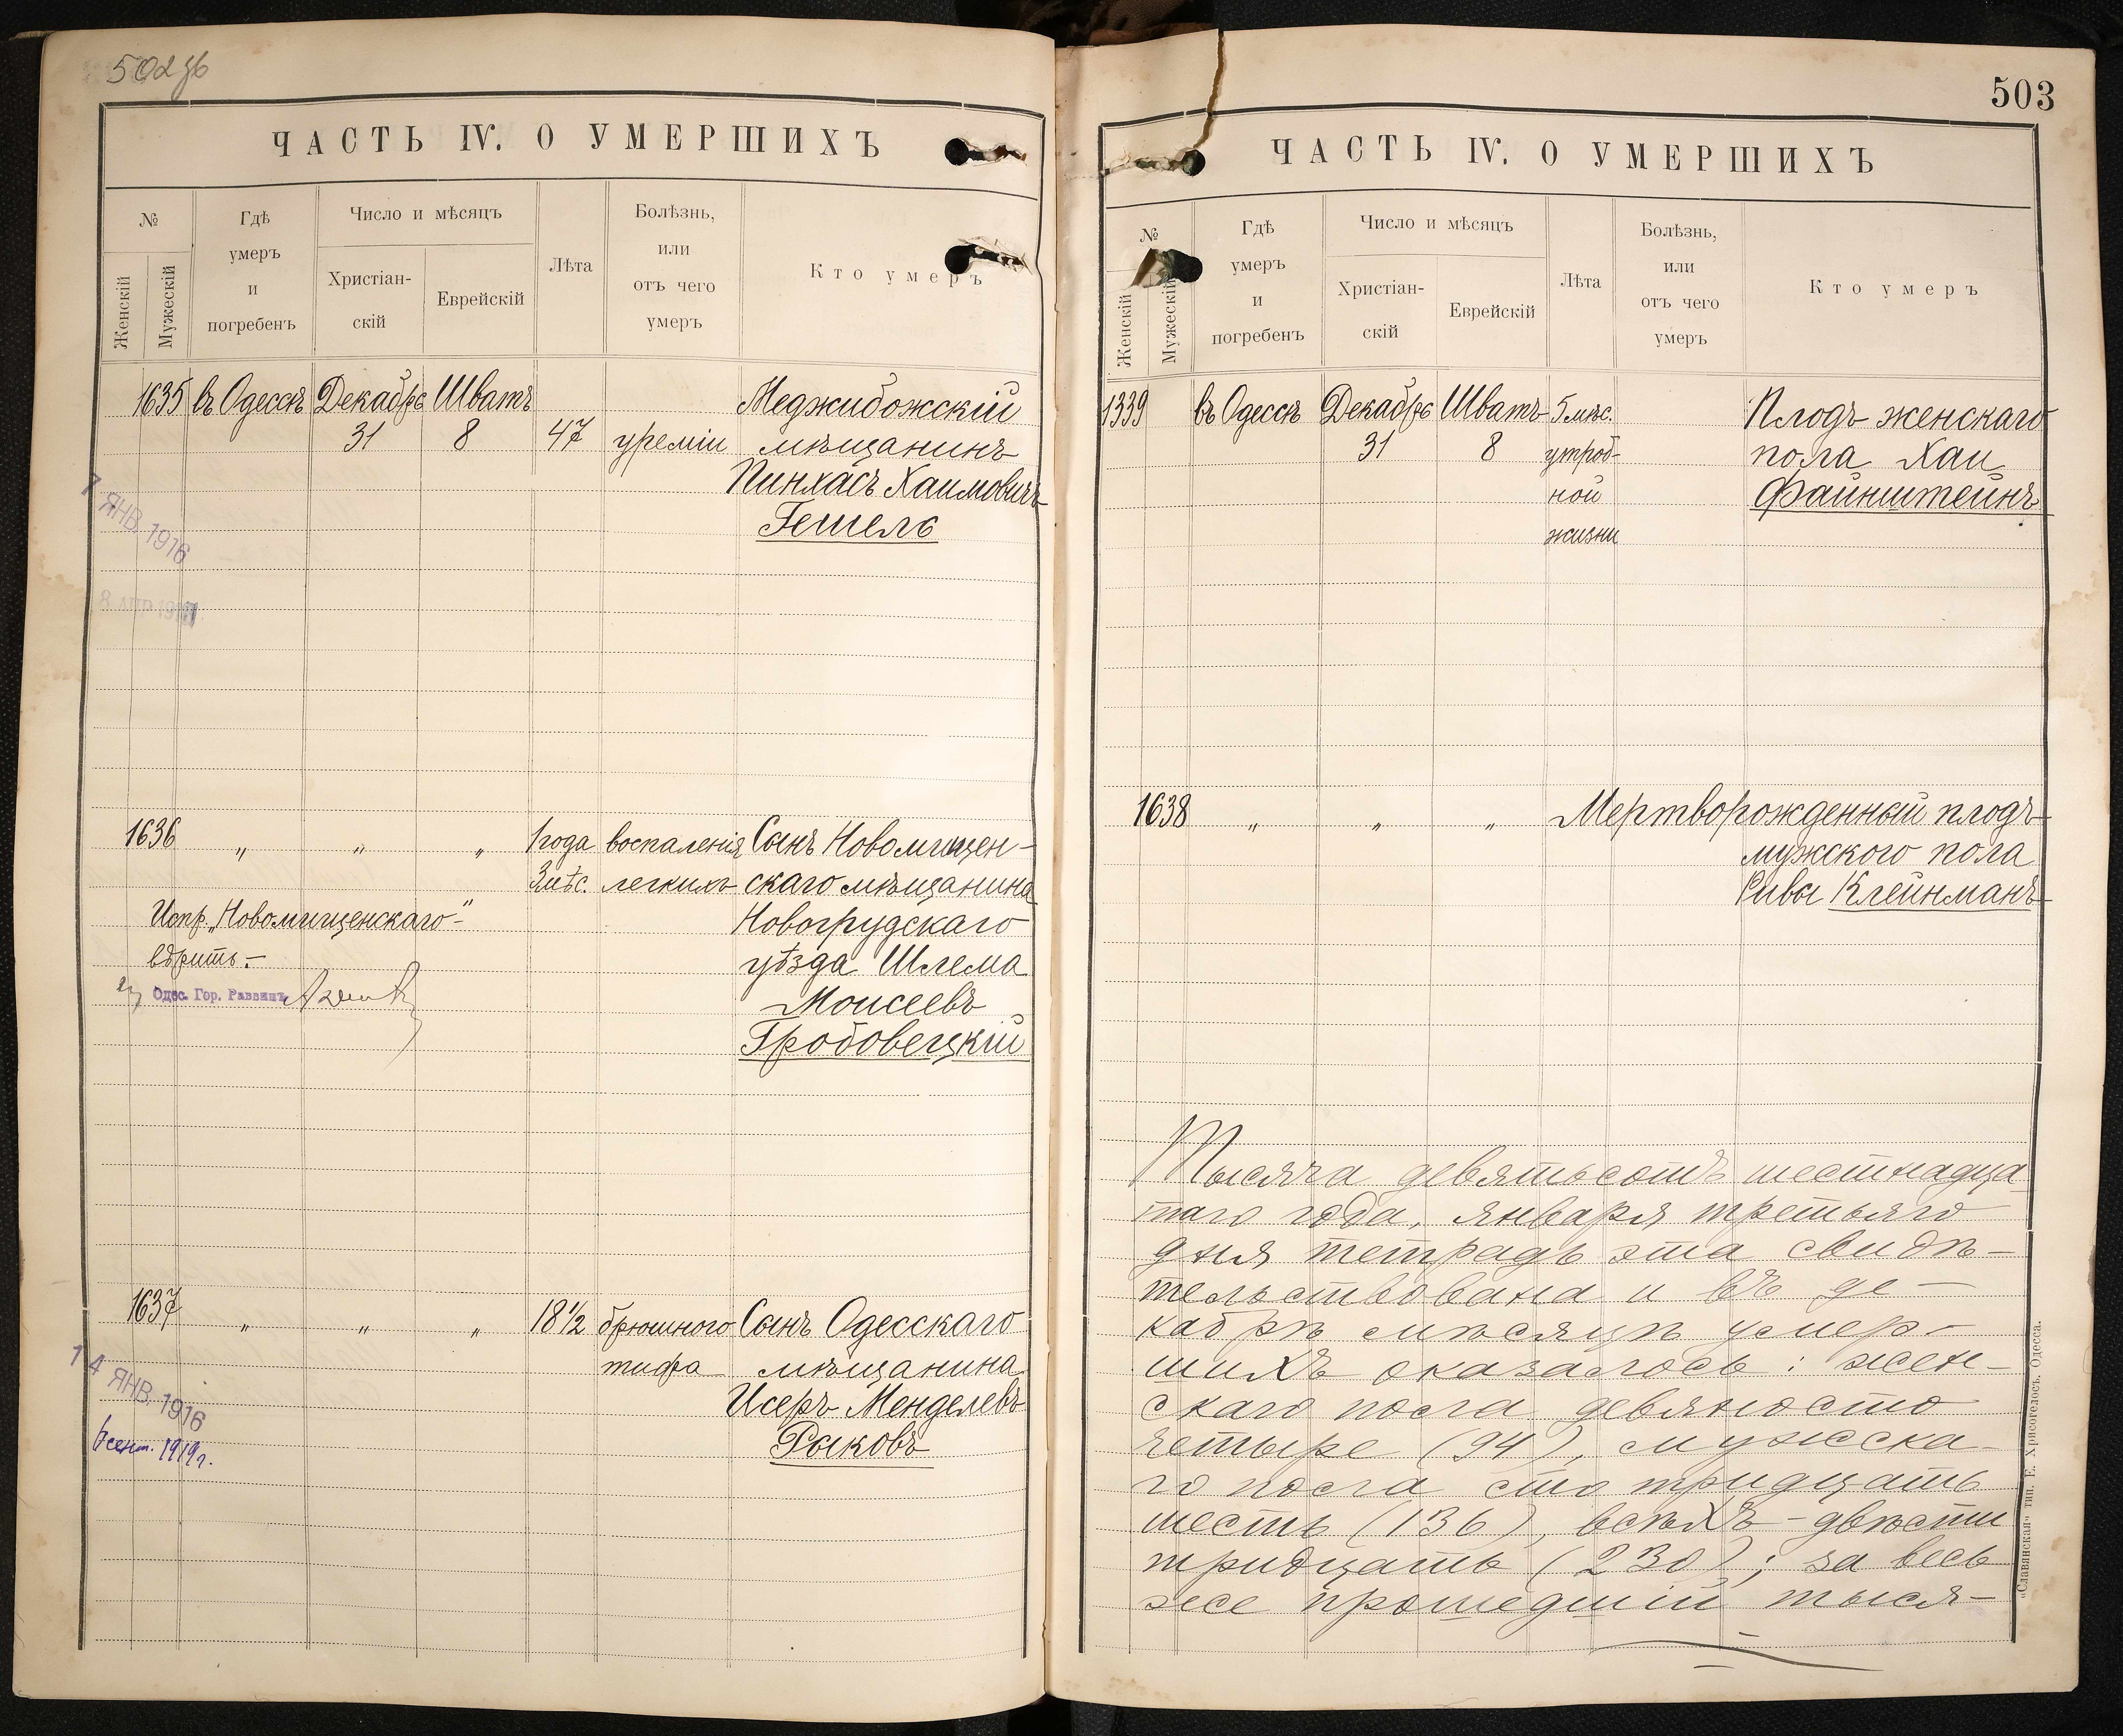 502об
ЧАСТЬ IV. О УМЕРШИХЪ
№
Женскій
Мужескій
Гдѣ
умеръ
и
погребенъ
Число и мѣсяцъ
Христіан-
скій
Еврейскій
Лѣта
Болѣзнь,
или
отъ чего
умеръ
Кто умеръ
1635 въ Одессѣ Декабрь Шватъ Меджибожскій
31 8 47 уреміи мѣщанинъ
Пинхасъ Хаимовичъ
Гешель
7 ЯНВ. 1916
8 АПР 191
1636 „ „ „ 1 года воспаленія Сынъ Новомышцен-
3 мѣс. легкихъ скаго мѣщанина
Испр. „Новомышценскаго“ Новогрудскаго
вѣрить.- уѣзда Шлема
Одес. Гор. Раввинъ
Моисеевъ
Гробовецкій
1637 „ „ „ 18½ брюшного Сынъ Одесскаго
тифа мѣщанина
Исеръ Менделевъ
Рыковъ
14 ЯНВ. 1916
сент. 1919 г.
503
ЧАСТЬ IV. О УМЕРШИХЪ
№
Женскій
Мужескій
Гдѣ
умеръ
и
погребенъ
Число и мѣсяцъ
Христіан-
скій
Еврейскій
Лѣта
Болѣзнь,
или
отъ чего
умеръ
Кто умеръ
1339 въ Одессѣ Декабрь Шватъ 5 мѣс. Плодъ женскаго
31 8 утроб- пола Хаи
ной Файнштейнъ
жизни
1638 „ „ „ Мертворожденный плодъ
мужского пола
Ривы Клейнманъ
Тысяча девятьсотъ шестнадца
таго года, января третьяго
дня тетрадь эта свидѣ-
тельствована и въ де-
кабрѣ мѣсяцѣ умер-
шихъ оказалось: жен-
скаго пола девяносто
четыре (94), мужска-
го пола сто тридцать
шесть (136), всѣхъ - двѣсти
тридцать (230); за весь
же прошедшій тыся-
„Славянская“ тип. Е. Хрисогелосъ. Одесса.